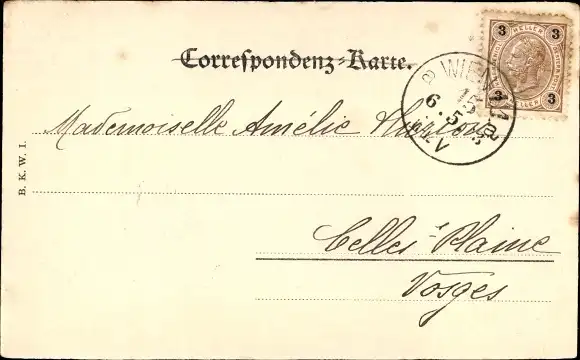 Correspondenz-Karte.
3 HELLER 3
3 HELLER 3
WIEN
15
6.5
V
Mademoiselle Amélie
B. K. W. I.
Celles-s-Plaine
Vosges